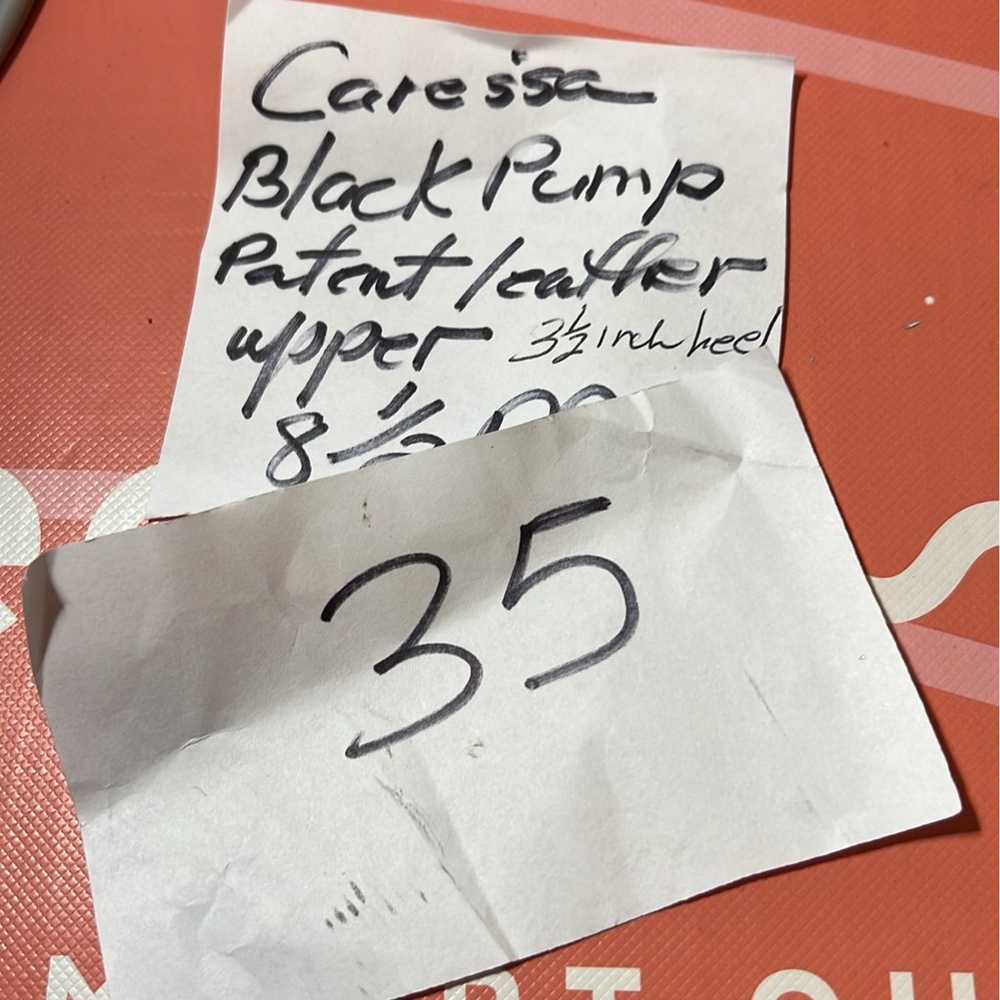 Caressa
Black Pump
Patent leather
upper 3½ inch heel
8½
35